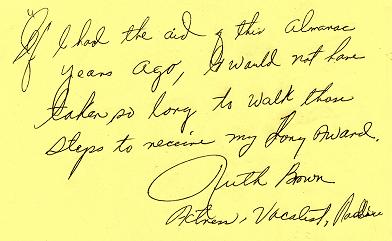 "If I had the aid of this almanac
years ago, it would not have
taken so long to walk those
steps to receive my Tony Award.
Ruth Brown
Actress, Vocalist,